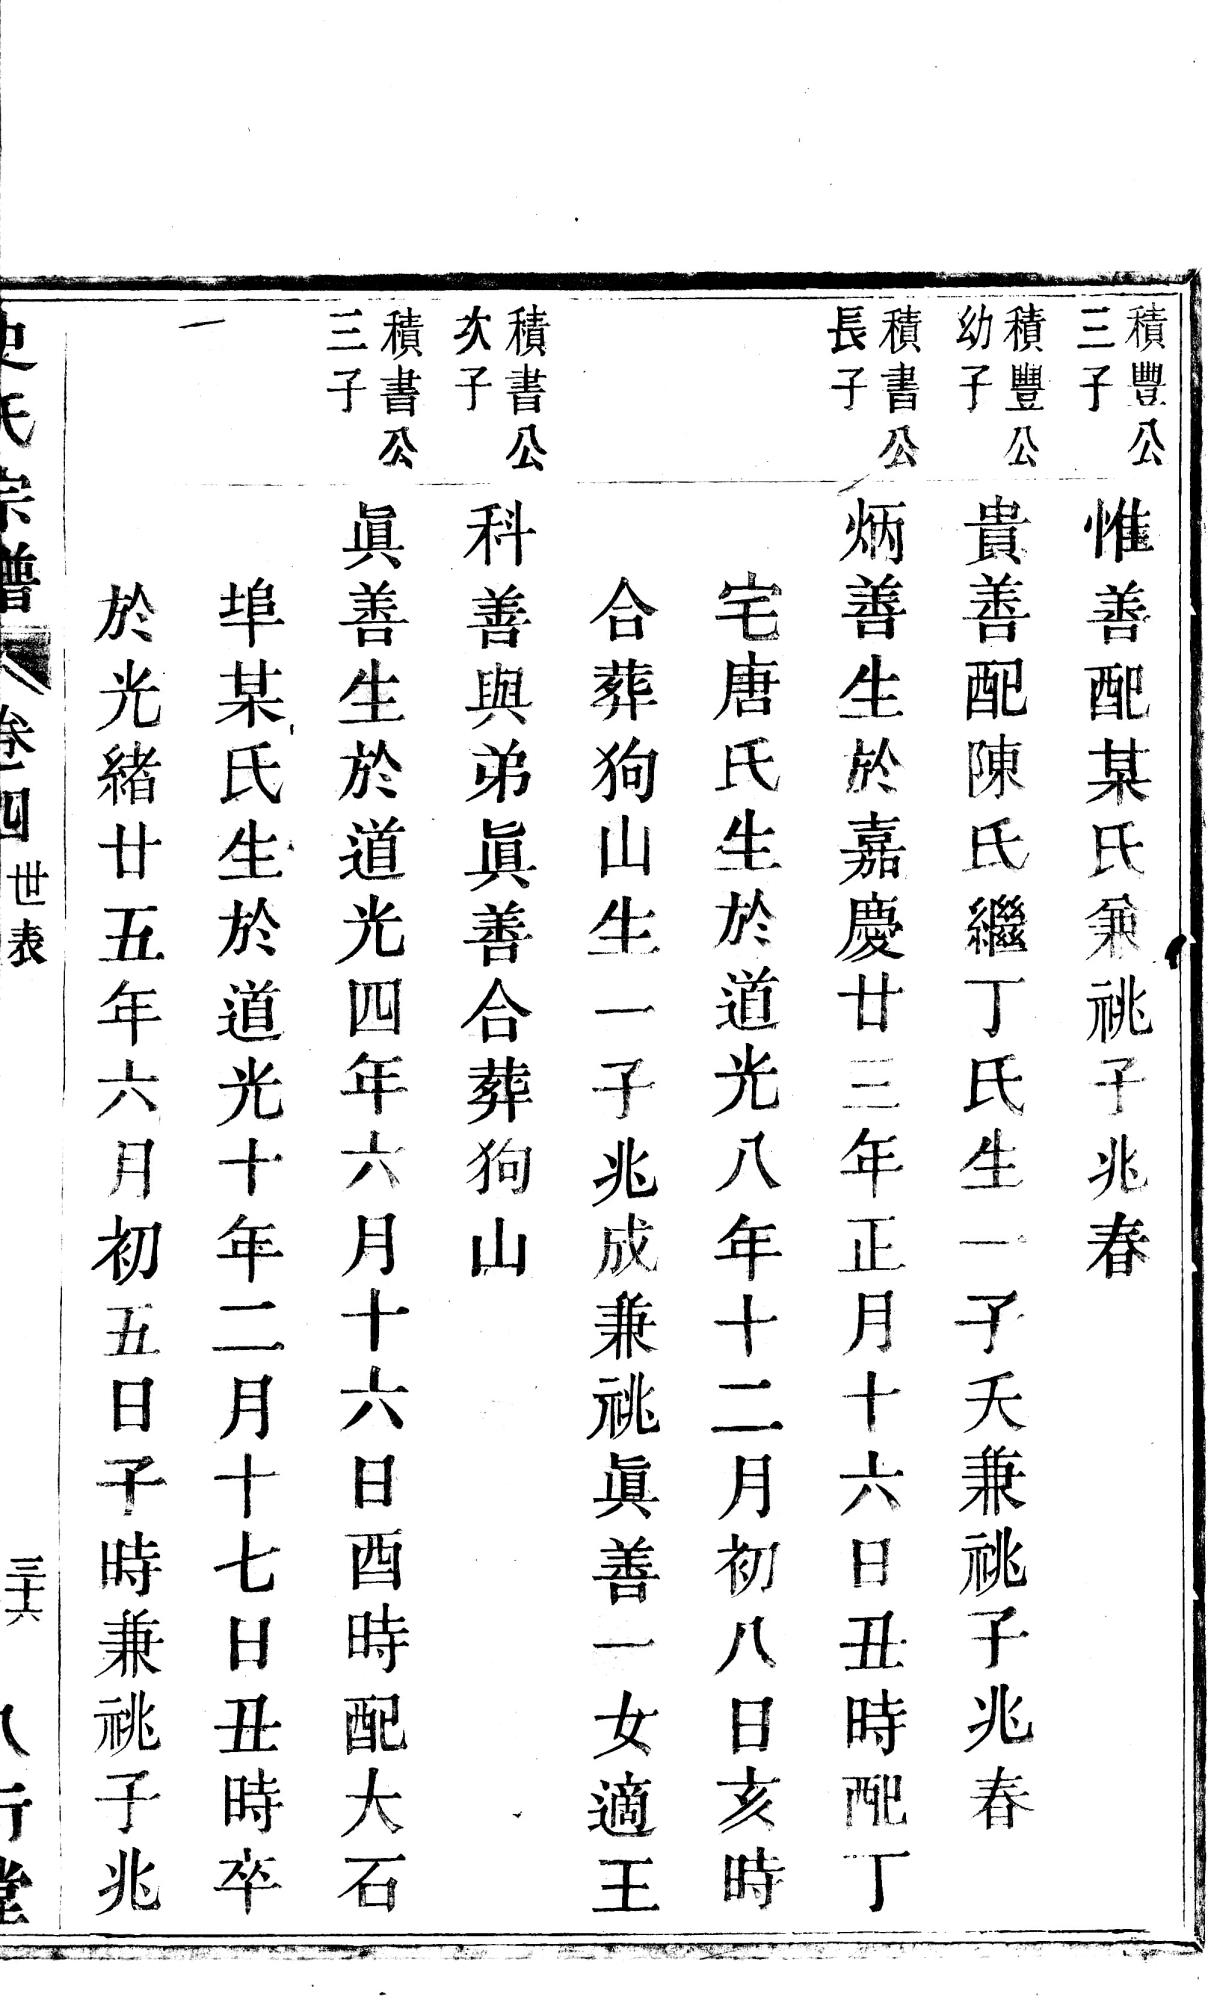 積豐公
三子
惟善配某氏兼祧子兆春
積豐公
幼子
貴善配陳氏繼丁氏生一子夭兼祧子兆春
積書公
長子
炳善生於嘉慶廿三年正月十六日丑時配丁
宅唐氏生於道光八年十二月初八日亥時
合葬狗山生一子兆成兼祧眞善一女適王
積書公
次子
科善與弟眞善合葬狗山
積書公
三子
眞善生於道光四年六月十六日酉時配大石
埠某氏生於道光十年二月十七日丑時卒
於光緒廿五年六月初五日子時兼祧子兆
史氏宗譜
卷四
世表
三十六
八行堂